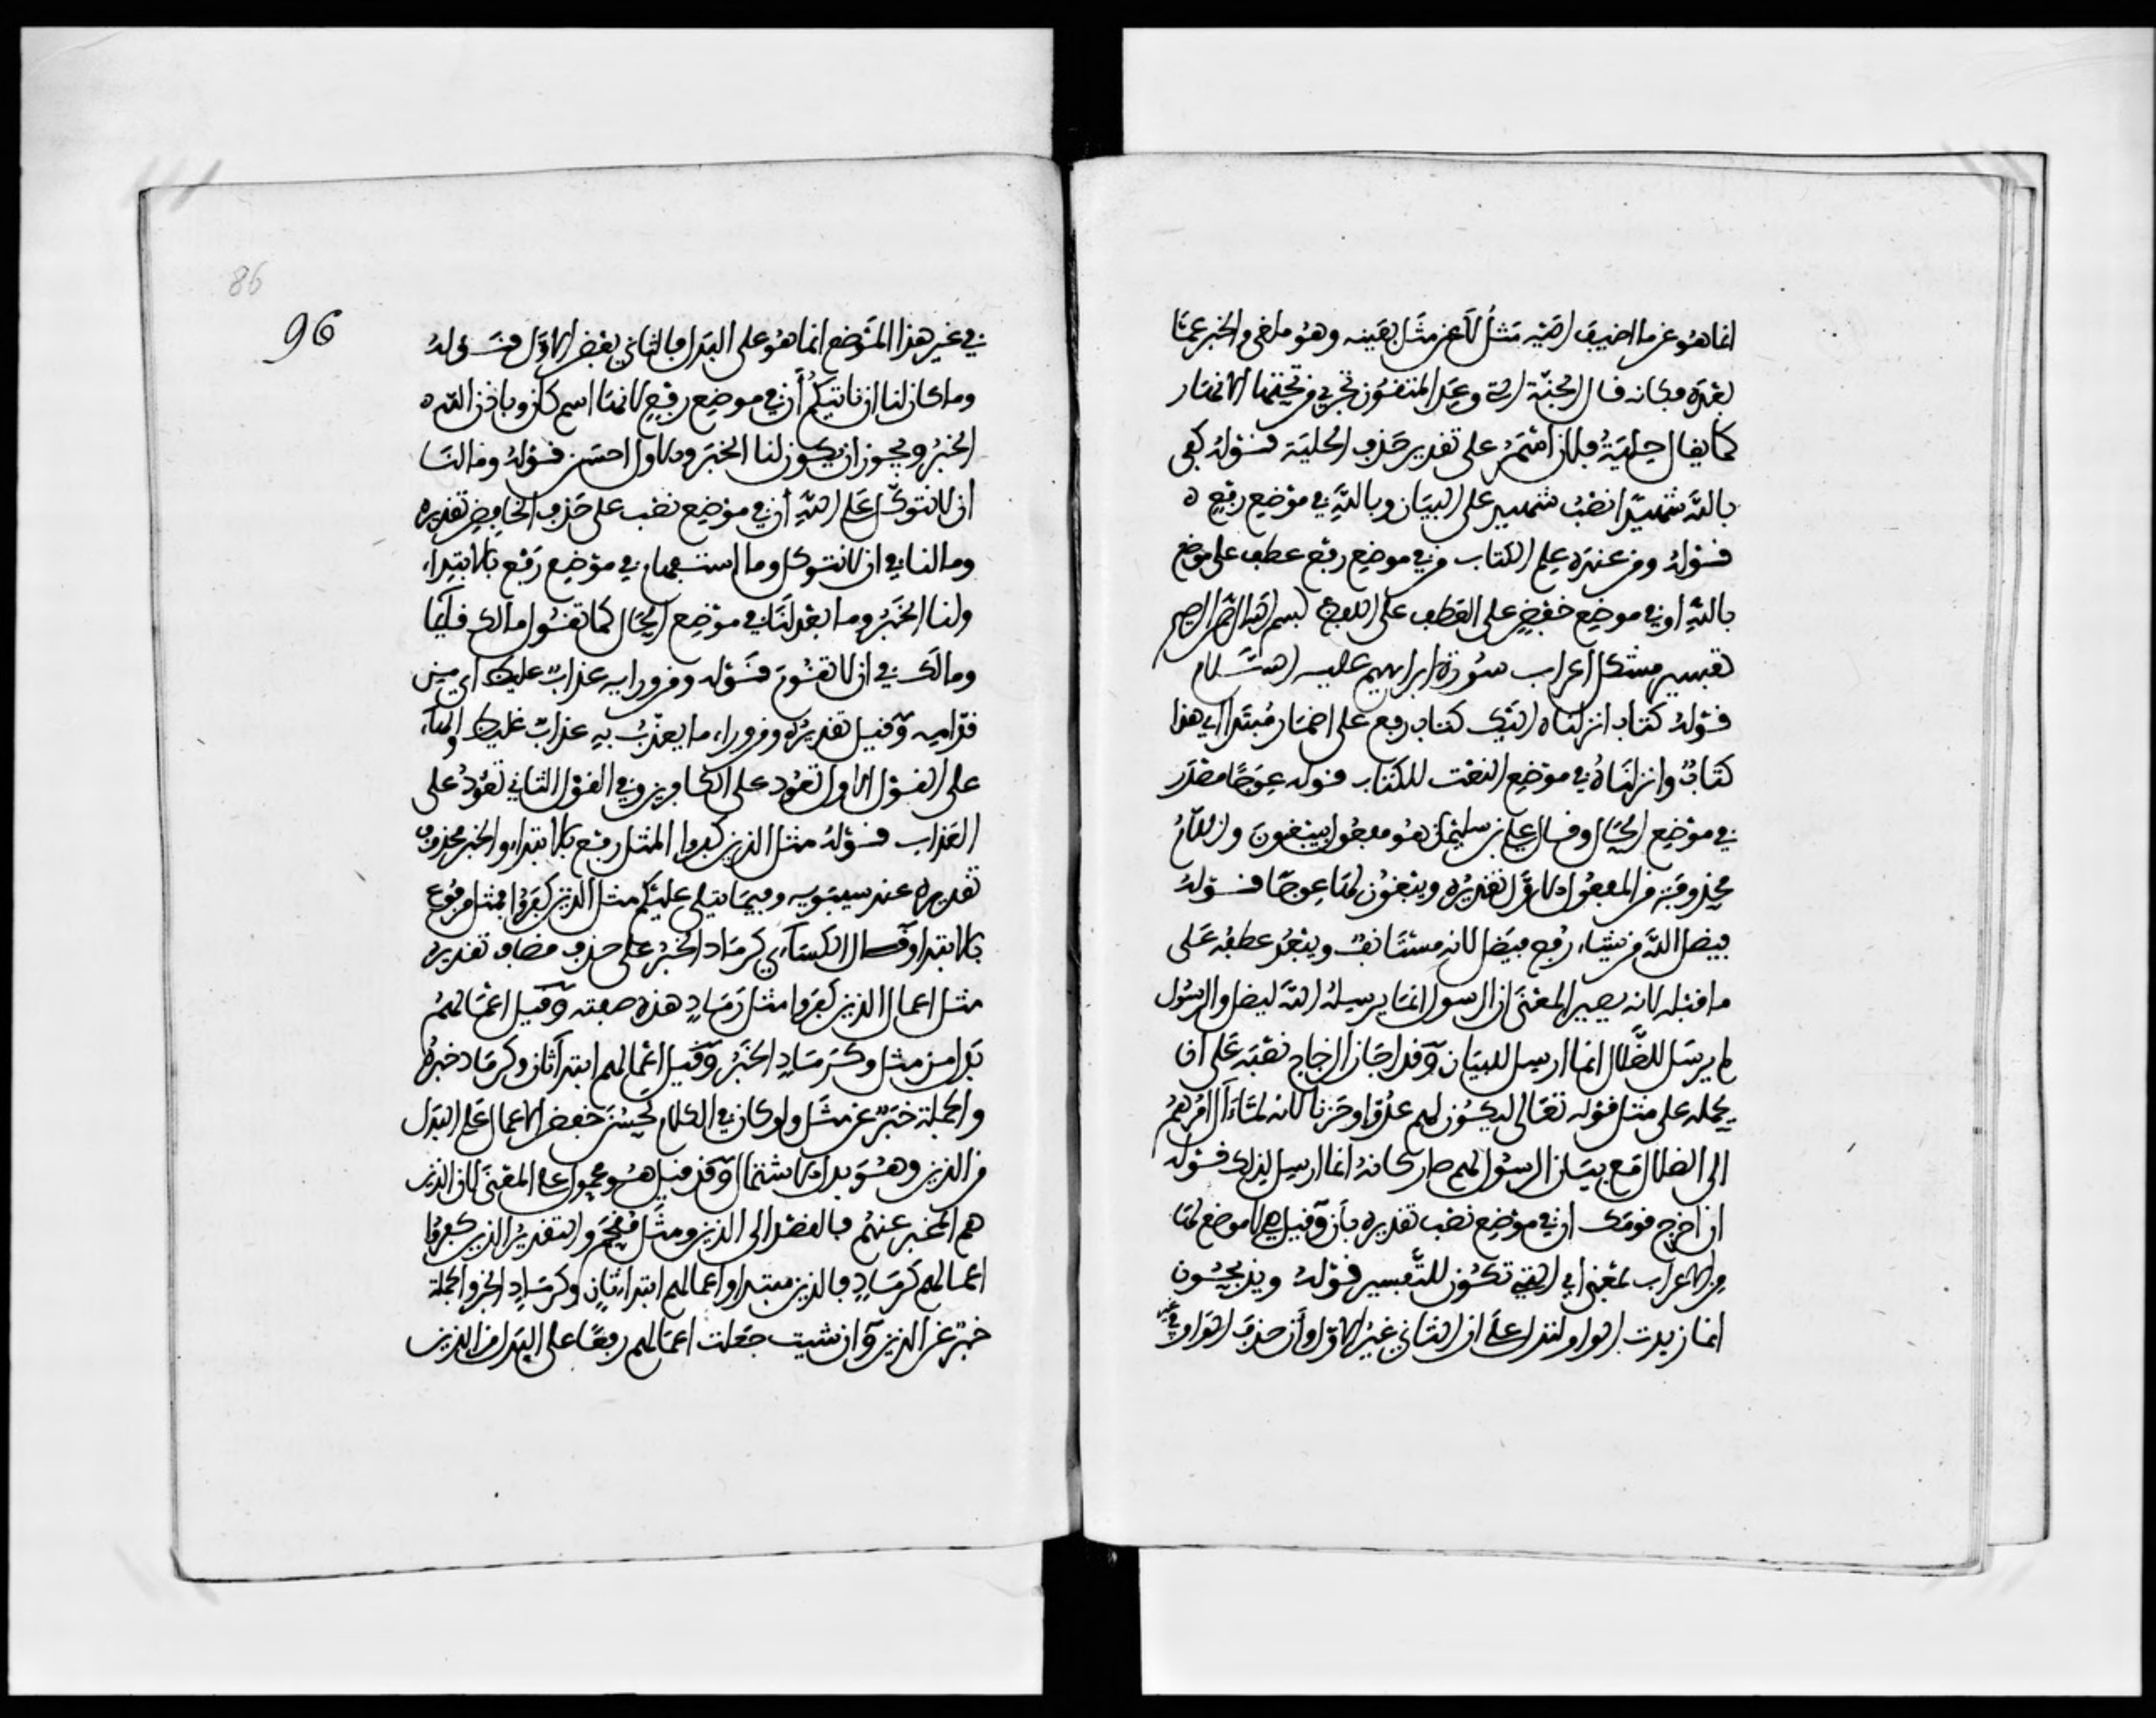 انما هو عن ما اضيف اليه مثل لا عن مثل بعينه وهو ملغى والخبر عما
بعده فكانه قال الجنة التي وعد المتقون تجري من تحتها الانهار
كما يقال حلية فلان اسمر على تقدير حذف الحلية قوله كفى
بالله شهيدا نصب شهيد على البيان وبالله في موضع رفع ه
قوله ومن عنده علم الكتاب من في موضع رفع عطف على موضع
بالله او في موضع خفض على العطف على اللفظ بسم الله الرحمن الرحيم
تفسير مشكل اعراب سورة ابراهيم عليه السلام
قوله كتاب انزلناه اليك كتاب رفع على اضمار مبتدا اي هذا
كتاب وانزلناه في موضع النعت للكتاب قوله عوجا مصدر
في موضع الحال وقال علي بن سليمان هو مفعول يبغون واللام
محذوفة من المفعول الاول تقديره ويبغون لها عوجا قوله
فيضل الله من يشاء رفع فيضل لانه مستانف ويبعد عطفه على
ما قبله لانه يصير المعنى ان الرسول انما يرسله الله ليضل والرسول
لم يرسل للضلال انما ارسل للبيان وقد اجاز الزجاج نصبه على ان
يحمله على مثل قوله تعالى ليكون لهم عدوا وحزنا لانه لما آل امرهم
الى الضلال مع بيان الرسول لهم صار كانه انما ارسل لذلك قوله
ان اخرج قومك ان في موضع نصب تقديره بان وقيل هي لا موضع لها
من الاعراب بمعنى اي التي تكون للتفسير قوله ويذبحون
انما زيدت الواو لتدل على ان الثاني غير الاول وان حذف الواو في
غير
86
96
في غير هذا الموضع انما هو على البدل فالثاني بعض الاول قوله
وما كان لنا ان ناتيكم ان في موضع رفع لانها اسم كان وباذن الله ه
الخبر ويجوز ان يكون لنا الخبر والاول احسن قوله وما لنا
ان لا نتوكل على الله ان في موضع نصب على حذف الخافض تقديره
وما لنا في ان لا نتوكل وما استفهام في موضع رفع بالابتداء
ولنا الخبر وما بعد لنا في موضع الحال كما تقول مالك قائما
ومالك في ان لا تقوم قوله ومن ورايه عذاب غليظ اي من
قدامه وقيل تقديره ومن وراء ما يعذب به عذاب غليظ والهاء
على القول الاول تعود على الكافر وفي القول الثاني تعود على
العذاب قوله مثل الذين كفروا المثل رفع بالابتداء والخبر محذوف
تقديره عند سيبويه وفيما يتلى عليكم مثل الذين كفروا فمثل مرفوع
بالابتدا وقال الكساءي كرماد الخبر على حذف مضاف تقديره
مثل اعمال الذين كفروا مثل رماد هذه صفته وقيل اعمالهم
بدل من مثل وكرماد الخبر وقيل اعمالهم ابتدا ثان وكرماد خبره
والجملة خبر عن مثل ولو كان في الكلام لحسن خفض الاعمال على البدل
من الذين وهو بدل الاشتمال وقد قيل هو محمول على المعنى لان الذين
هم المخبر عنهم فالقصد الى الذين ومثل مقحم والتقدير الذين كفروا
اعمالهم كرماد فالذين مبتدا واعمالهم ابتدا ثان وكرماد الخبر والجملة
خبر عن الذين وان شيت جعلت اعمالهم رفعا على البدل من الذين